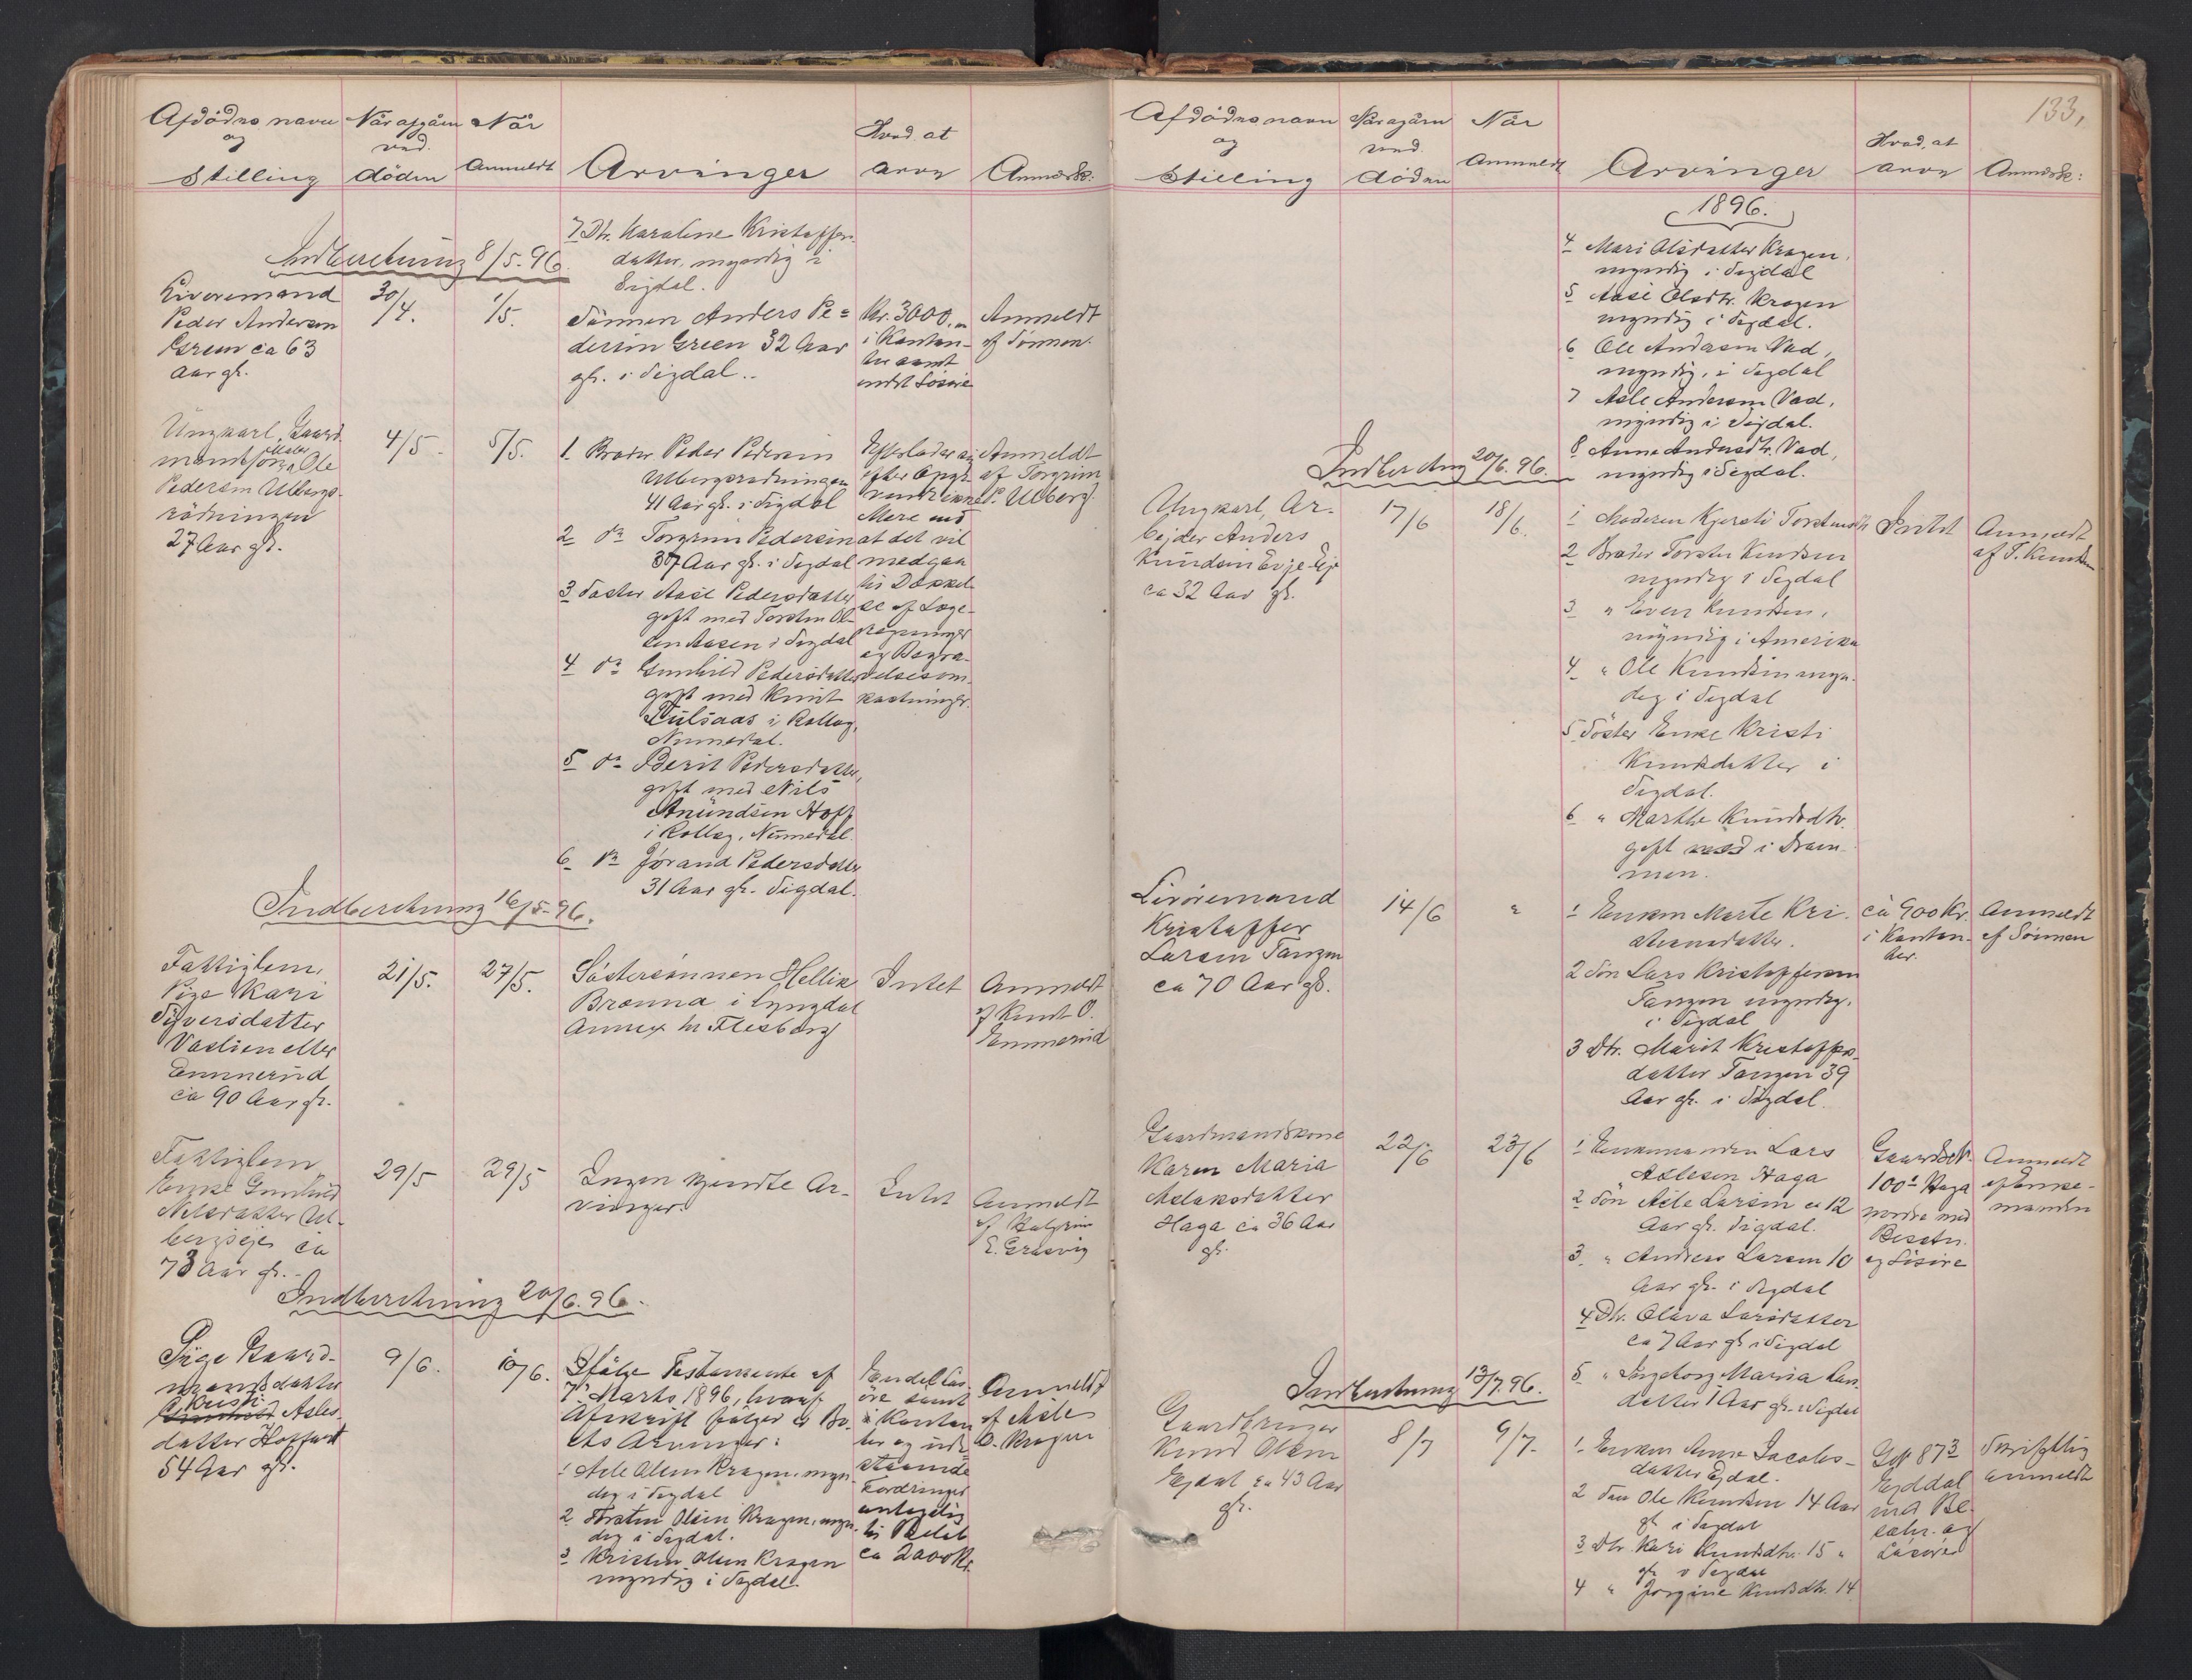 Afdödes navn
og
Stilling
Når afgåen
ved
döden
Når
Anmeldt
Arvinger
Hvad at
arve
Anmærk:
7 Dtr. Karoline Kristoffers-
datter, myndig i
Sigdal.
Indberetning 8/5-96.
Livöremand
Peder Andersen
Green ca 63
Aar gl.
30/4.
1/5.
Sönnen Anders Pe=
dersen Green 32 Aar
gl. i Sigdal.
Kr. 3000,
i Kontan-
ter samt
endel Lösöre
Anmeldt
af Sönnen.
Ungkarl, Gaard
mandssön, Ole
Pedersen Ulbergs-
rödningen
27 Aar gl.
4/5.
5/5.
1. Broder Peder Pedersen
Ulbergsrødningen
41 Aar gl. i Sigdal
2 do Torgrim Pedersen
37 Aar gl. i Sigdal
3 Söster Aase Pedersdatter
gift med Torsten Ol-
sen Aasen i Sigdal
4 do Gunhild Pedersdatter
gift med Knut
Tulsaas i Rollag,
Numedal.
5 do Berit Pedersdatter,
gift med Nils
Amundsen Hoff
i Rollag, Numedal.
6 do Jörand Pedersdatter
31 Aar gl. Sigdal.
Efterlader sig
efter Opgi-
vende ikke
Mere end
at det vil
medgaa
til Dækkel-
se af Læge-
regninger
og Begra-
velsesom-
kostninger.
Anmeldt
af Torgrim
P. Ulberg.
Indberetning 16/5-96.
Fattiglem,
Pige Kari
Syversdatter
Vaslien eller
Emmerud
ca 90 Aar gl.
21/5.
27/5.
Söstersönnen Hellik
Brænna i Lyngdal
Annex til Flesberg
Intet
Anmeldt
af Knut O.
Emmerud
Fattiglem
Enke Gunhild
Nilsdatter Ul-
bergseje ca
73 Aar gl.
29/5
29/5
Ingen kjendte Ar-
vinger.
Intet
Anmeldt
af Halgrim
E. Græsvig
Indberetning 20/6.96.
Pige Gaard-
mandsdatter
Kristi
Gunhild Asles-
datter Hoffart
54 Aar gl.
9/6.
10/6.
Ifölge Testamente af
7 Marts 1896, hvoraf
Afskrift fölger er Bo-
ets Arvinger:
1 Asle Olsen Kragen, myn-
dig i Sigdal
2 Torsten Olsen Kragen, myn-
dig i Sigdal.
3 Kristen Olsen Kragen
myndig i Sigdal.
Endel Lös-
öre samt
i Kontan-
ter og ude-
staaende
Fordringer
antagelig
til Beløb
ca 2000 Kr.
Anmeldt
af Asle
O. Kragen
133,
Afdödes navn
og
Stilling
Når afgåen
ved
döden
Når
Anmeldt
Arvinger
Hvad, at
arve
Anmærk:
1896.
4 Mari Olsdatter Kragen,
myndig i Sigdal
5 Aase Olsdtr. Kragen
myndig i Sigdal.
6 Ole Andersen Vad,
myndig, i Sigdal
7 Asle Andersen Vad,
myndig i Sigdal.
8 Anne Andersdtr. Vad,
myndig i Sigdal.
Indberetng 20/6.96.
Ungkarl, Ar-
bejder Anders
Knudsen Evje-Eje
ca 32 Aar gl.
17/6
18/6.
1 Moderen Kjersti Torstensdtr
2 Broder Torsten Knudsen
myndig i Sigdal
3 " Even Knudsen,
myndig i Amerika
4 " Ole Knudsen myn-
dig i Sigdal
5 Söster Enke Kristi
Knudsdatter i
Sigdal.
6 " Marthe Knudsdtr.
gift med i Dram-
men.
Intet
Anmeldt
af T. Knudsen
Livöremand
Kristoffer
Larsen Tangen
ca 70 Aar gl.
14/6
"
1 Enken Marte Kri-
stiansdatter.
2 Sön Lars Kristoffersen
Tangen myndig.
i Sigdal
3 Dtr. Marit Kristoffers-
datter Tangen 39
Aar gl. i Sigdal.
ca 900 Kr.
i Kontan-
ter.
Anmeldt
af Sönnen
Gaardmandskone
Karen Maria
Aslaksdatter
Haga ca 36 Aar
gl.
22/6
23/6
1 Enkemanden Lars
Aslesen Haga
2 Sön Asle Larsen ca 12
Aar gl. Sigdal.
3. " Andreas Larsen 10
Aar gl. i Sigdal
4 Dtr. Olava Larsdatter
ca 7 Aar gl. i Sigdal
5 " Ingeborg Maria Lars-
datter 1 Aar gl. i Sigdal
100 Haga
nordre med
Besætn.
og Lösöre
Anmeldt
af Enke-
manden
Indberetning 13/7.96.
Gaardbruger
Knud Olsen
Eydal ca 43 Aar
gl.
8/7
9/7.
1. Enken Anne Jacobs-
datter Eydal.
2 Sön Ole Knudsen 14 Aar
gl. i Sigdal
3 Dtr. Kari Knudsdtr. 15 "
gl. i Sigdal
4 " Jörgine Knudsdtr. 14
87
Eyddal
med Be-
sætn. og
Lösöre
Skriftlig
anmeldt